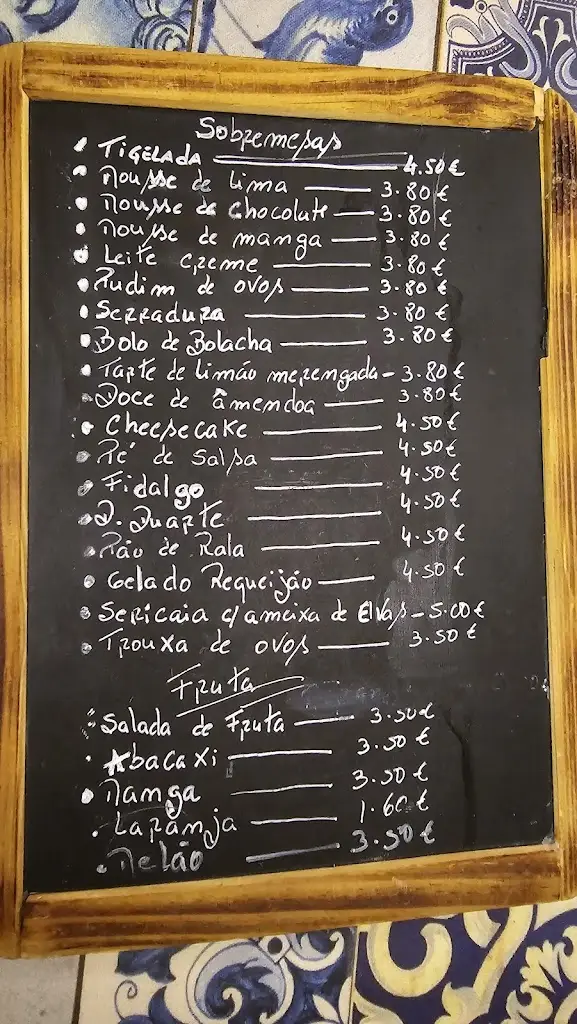 Sobremesas
TIGELADA 4.50€
Mousse de Lima 3.80€
Mousse de chocolate 3.80€
Mousse de manga 3.80€
Leite creme 3.80€
Pudim de ovos 3.80€
Serradura 3.80€
Bolo de Bolacha 3.80€
Tarte de Limão merengada - 3.80€
Doce de âmendoa 3.80€
Cheesecake 4.50€
Pé de Salsa 4.50€
Fidalgo 4.50€
D. Duarte 4.50€
Pão de Rala 4.50€
Gelado Requeijão 4.50€
Sericaia c/ ameixa de Elvas - 5.00€
Trouxa de ovos 3.50€
Fruta
Salada de Fruta 3.50€
Abacaxi 3.50€
Manga 3.50€
Laranja 1.60€
Melão 3.50€